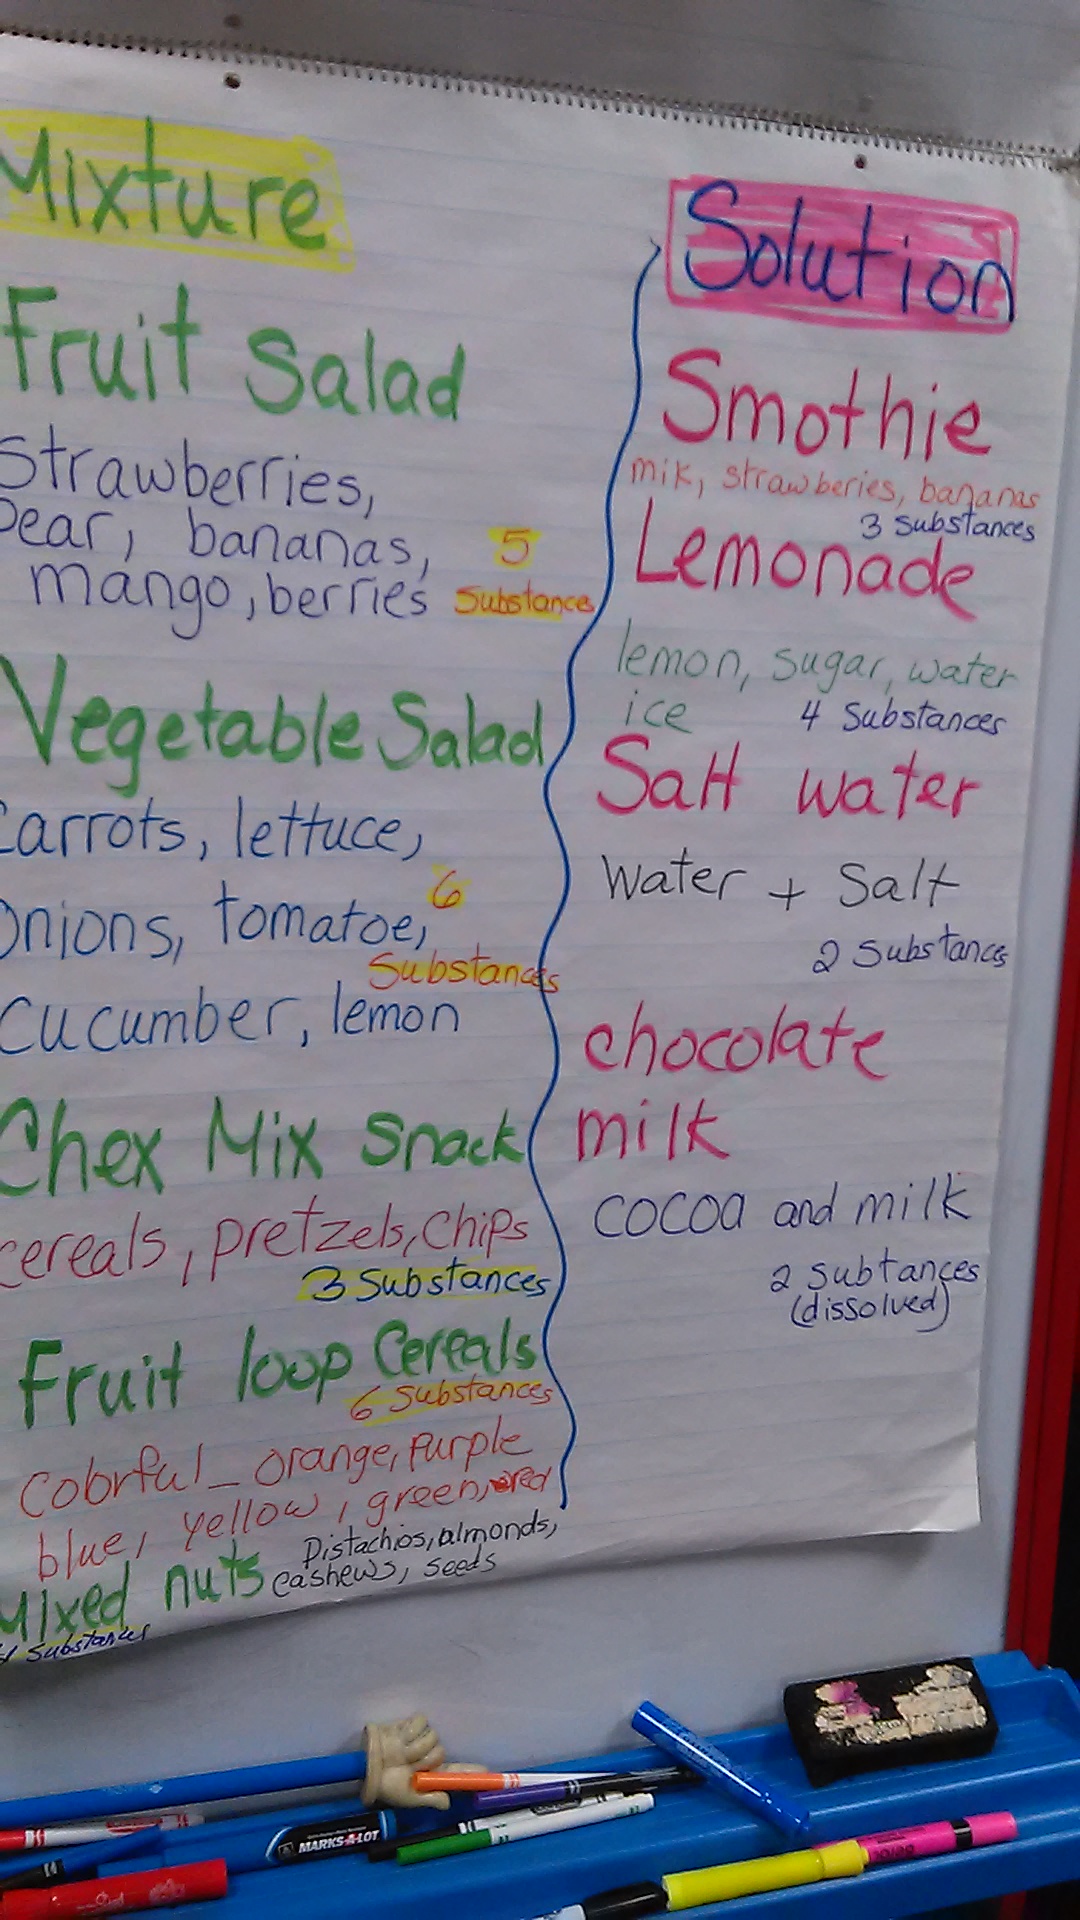 Mixture
Fruit Salad
Strawberries,
Pear, bananas,
mango, berries
5
Substances
Vegetable Salad
Carrots, lettuce,
Onions, tomatoe,
6
Substances
cucumber, lemon
Chex Mix Snack
cereals, pretzels, chips
3 Substances
Fruit loop Cereals
6 Substances
Colorful - orange, purple
blue, yellow, green, red
Mixed nuts
Pistachios, almonds,
cashews, seeds
4 Substances
Solution
Smothie
mik, strawberies, bananas
3 Substances
Lemonade
lemon, sugar, water
ice
4 Substances
Salt water
Water + Salt
2 Substances
chocolate
milk
cocoa and milk
2 subtances
(dissolved)
MARKS-A-LOT